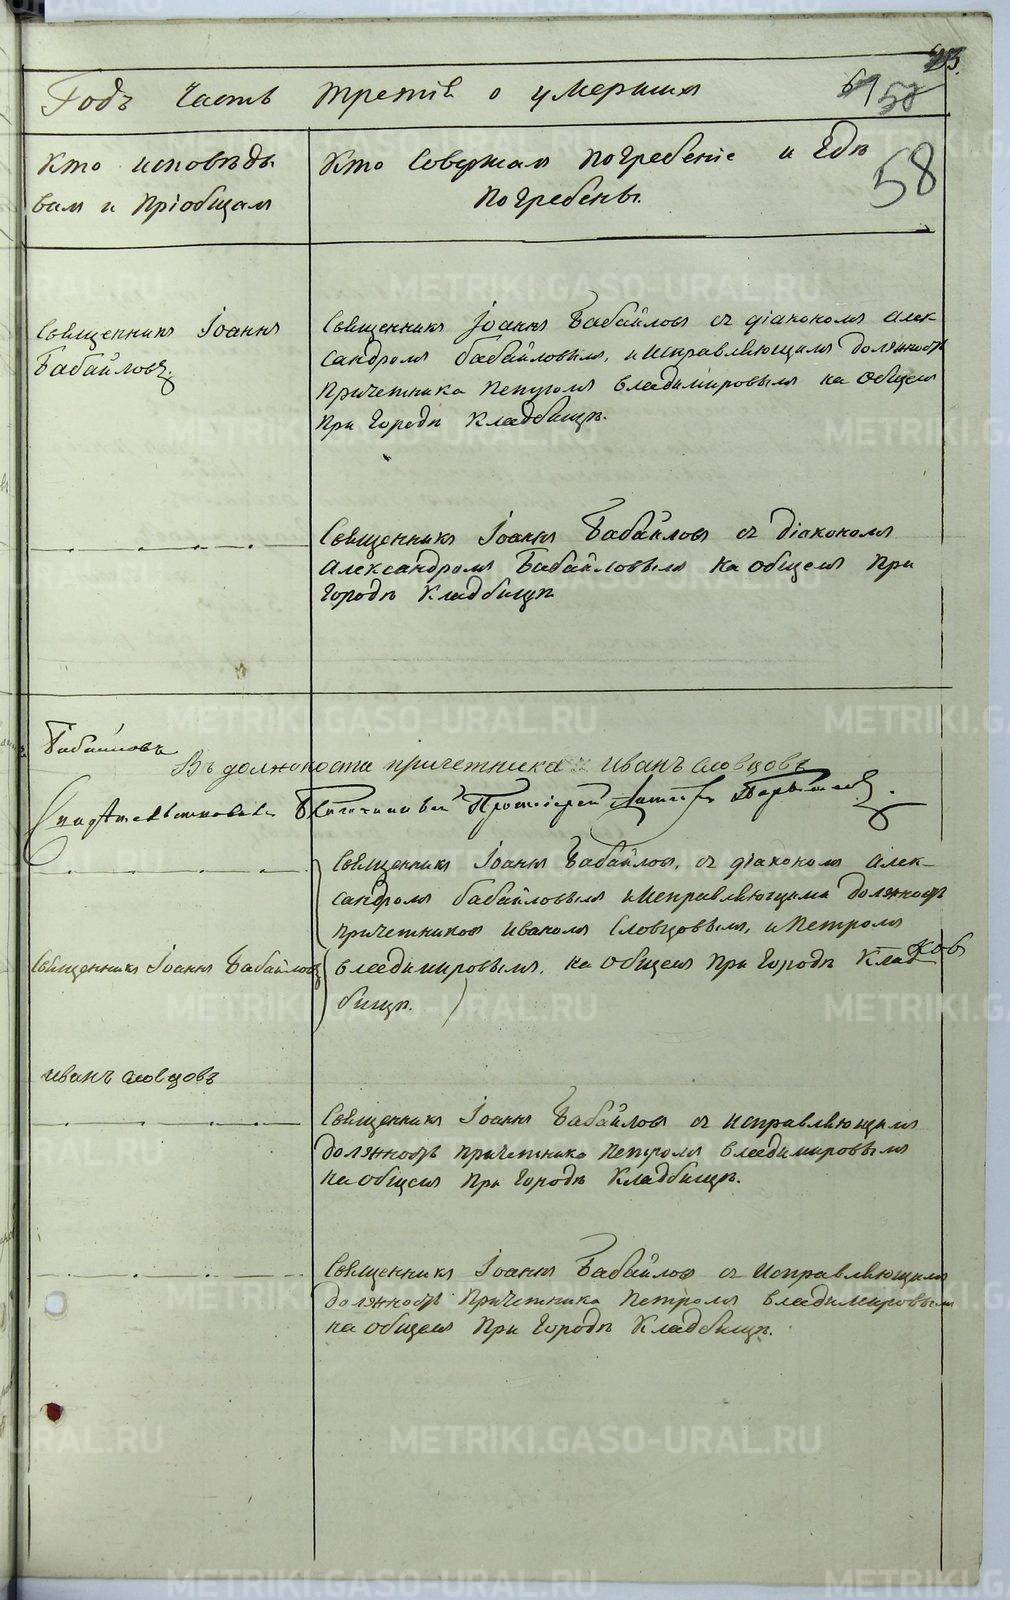 Годъ Часть третія о умершихъ
58
Кто исповѣды- Кто Совершалъ погребеніе и гдѣ
валъ и пріобщалъ погребены.
Священникъ Іоаннъ
Бабайловъ.
Священникъ Іоаннъ Бабайловъ съ діакономъ Алек-
сандромъ Бабайловымъ, и исправляющимъ должность
причетника Петромъ Владимировымъ на общемъ
при городѣ Кладбищѣ.
Священникъ Іоаннъ Бабайловъ съ діакономъ
Александромъ Бабайловымъ на общемъ при
городѣ Кладбищѣ
Бабайловъ
Въ должности причетника Иванъ Словцовъ
Благочинный Протоіерей
Священникъ Іоаннъ Бабайловъ, съ діакономъ Алек-
сандромъ Бабайловымъ и исправляющими должность
причетниковъ Иваномъ Словцовымъ, и Петромъ
Священникъ Іоаннъ Бабайловъ
Владимировымъ, на общемъ при городѣ Клад
бищѣ.
ковъ
Иванъ Словцовъ
Священникъ Іоаннъ Бабайловъ съ исправляющимъ
должность причетника Петромъ Владимировымъ
на общемъ при городѣ Кладбищѣ.
Священникъ Іоаннъ Бабайловъ съ исправляющимъ
должность причетника Петромъ Владимировымъ
на общемъ при городѣ Кладбищѣ.
METRIKI.GASO-URAL.RU